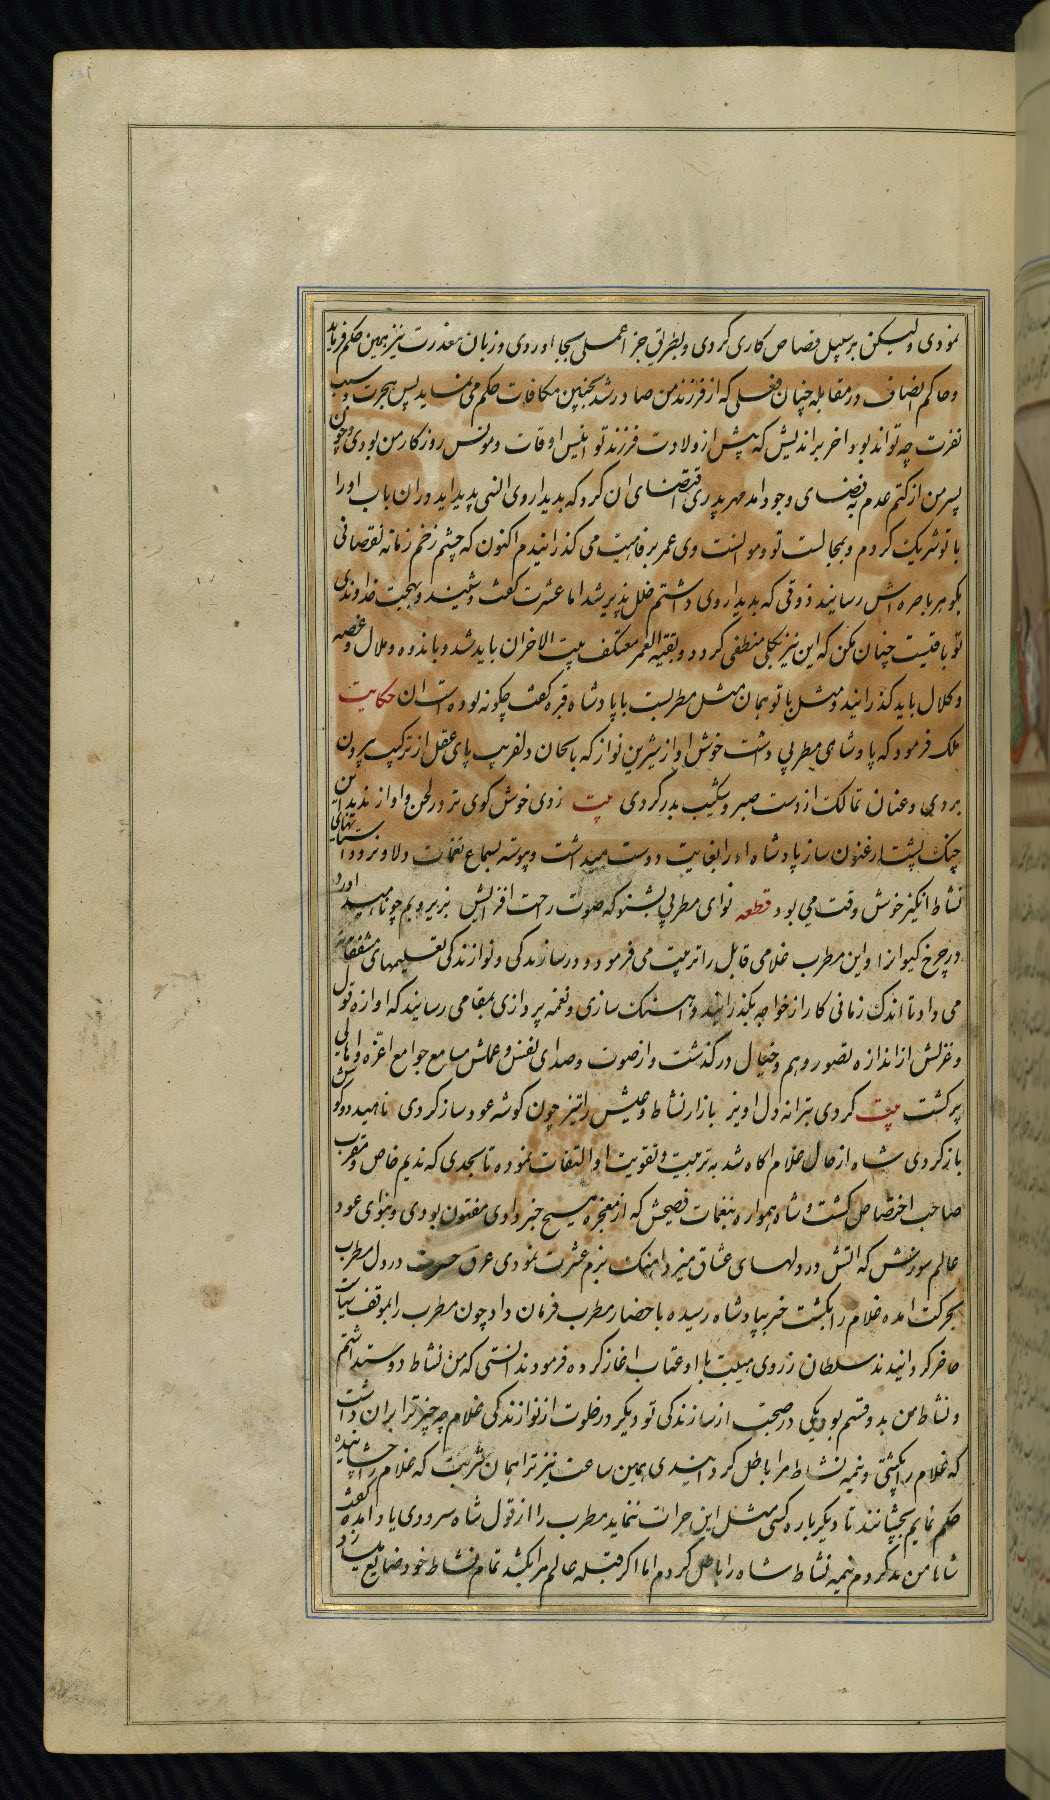 نمودی ولیکن بر سبیل قصاص کاری کردی و بطریق جزا عملی بجا اوردی و زبان معذرت نیز همین حکم فرماید
و حاکم انصاف در مقابله چنان فعلی که از فرزند من صادر شد بچنین مکافات حکم می نماید پس هجرت و سبب
نفرت چه تواند بود اخر براندیش که پیش از ولادت فرزند تو انیس اوقات و مونس روزکار من بودی و چون
پسر من از کتم عدم به فضای وجود امد مهر پدری اقتضای ان کرد که بدیدار وی النسی پدید اید و ران باب او را
با تو شریک کردم و بمجالست تو و موانست وی عمر برفاهیت می کذرانیدم اکنون که چشم زخم زمانه نقصانی
بکوهر باصره اش رسانید ذوقی که بدیدار وی داشتم خلل پذیر شد اما عشرت کفت و شنید و بهجت خداوندی
تو باقیست چنان مکن که این نیز بکلی منطفی کردد و بقیه العمر معتکف بیت الاحزان باید شد و باندوه و ملال و غصه
و کلال باید کذرانید و مثل با تو همان مثل مطربست با پادشاه قبره کفت چکونه بوده است ان حکایت
ملک فرمود که پادشاهی مطربی داشت خوش اواز شیرین نواز که بالحان دلفریب پای عقل از ترکیب بیرون
بردی و عنان تمالک از دست صبر و شکیب بدر کردی بیت زوی خوش کوی تر در لحن و اواز ندید این
چنک پشت ارغنون ساز پادشاه او را بغایت دوست میداشت و پیوسته بسماع نغمات دلاویز و دستانهای
نشاط انکیز خوش وقت می بود قطعه نوای مطربی بشنو که صوت راحت افزایش بزیر و بم چو ناهید اورد
در چرخ کیوانرا و این مطرب غلامی قابل را تربیت می فرمود و در سازندکی و نوازندکی تعلیمهای مشفقانه
می داد تا اندک زمانی کار از خواجه بکذرانید و اهنک سازی و نغمه پردازی بمقامی رسانید که اوازه قول
و غزلش از اندازه تصور و هم و خیال در کذشت و از صوت و صدای نقش و عملش مسامع جوامع اعزه و اهالی
پر کشت بیت کردی بترانه دل اویز بازار نشاط و عیش را تیز چون کوشه عود ساز کردی ناهید دو کوش
باز کردی شاه از حال غلام اکاه شد به تربیت و تقویت او التفات نموده تا بحدی که ندیم خاص و مقرب
صاحب اختصاص کشت و شاه همواره بنغمات فصیحش که از معجزه مسیح خبر دادی مفتون بودی و بنوای عود
عالم سوزش که اتش در دلهای عشاق میزد اهنک بزم عشرت نمودی عرق حسرت در دل مطرب
بحرکت امده غلام را بکشت خبر بپادشاه رسیده باحضار مطرب فرمان داد چون مطرب را بموقف سیاست
حاضر کردانیدند سلطان از روی هیبت با او عتاب اغاز کرده فرمود ندانستی که من نشاط دوست داشتم
و نشاط من بدو قسم بود یکی در صحبت از سازندکی تو و دیکر در خلوت از نوازندکی غلام چه چیز ترا بران داشت
که غلام را بکشتی و نیمه نشاط مرا باطل کردانیدی همین ساعت نیز ترا همان شربت که غلام را چشانیده
حکم نمایم بچشانند تا دیکر باره کسی مثل این جرات ننماید مطرب را از قول شاه سرودی یاد امده کفت
شاها من بد کردم نیمه نشاط شاه را باطل کردم اما اکر قبله عالم مرا بکشد تمام نشاط خود ضایع میسازد